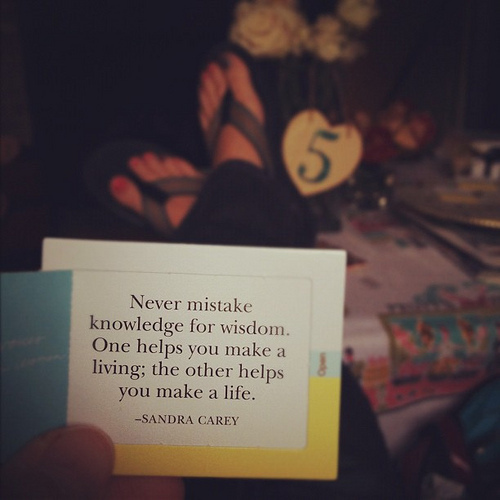 5
Never mistake
knowledge for wisdom.
One helps you make a
living; the other helps
you make a life.
–SANDRA CAREY
Open